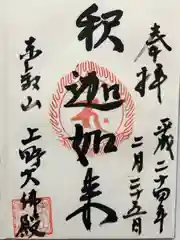 奉拝
平成二十四年
二月二十五日
釈迦如来
上野大佛殿
東叡山